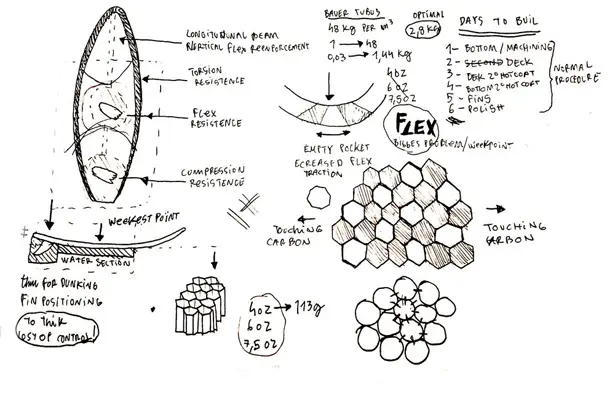 LONGITUDINAL BEAM
VERTICAL FLEX REENFORCEMENT
TORSION
RESISTENCE
FLEX
RESISTENCE
COMPRESSION
RESISTENCE
WEEKEST POINT
WATER SECTION
FOR DUNKING
FIN POSITIONING
TO THIK
OF CONTROL!
BAUER TUBUS
48 KG PER M³
1 → 48
0,03 → 1,44 Kg
OPTIMAL
2,8 KG
4 OZ
6 OZ
7,5 OZ
EMPTY POCKET
ECREASED FLEX
TRACTION
FLEX
BIGGES PROBLEM/WEEKPOINT
DAYS TO BUIL
1- BOTTOM/MACHINING
2- SECOND DECK
3- DECK 2° HOTCOAT
4- BOTTOM 2° HOTCOAT
5- FINS
6- POLISH
NORMAL
PROCEDURE
TOUCHING
CARBON
TOUCHING
CARBON
4 OZ → 113g
6 OZ
7,5 OZ